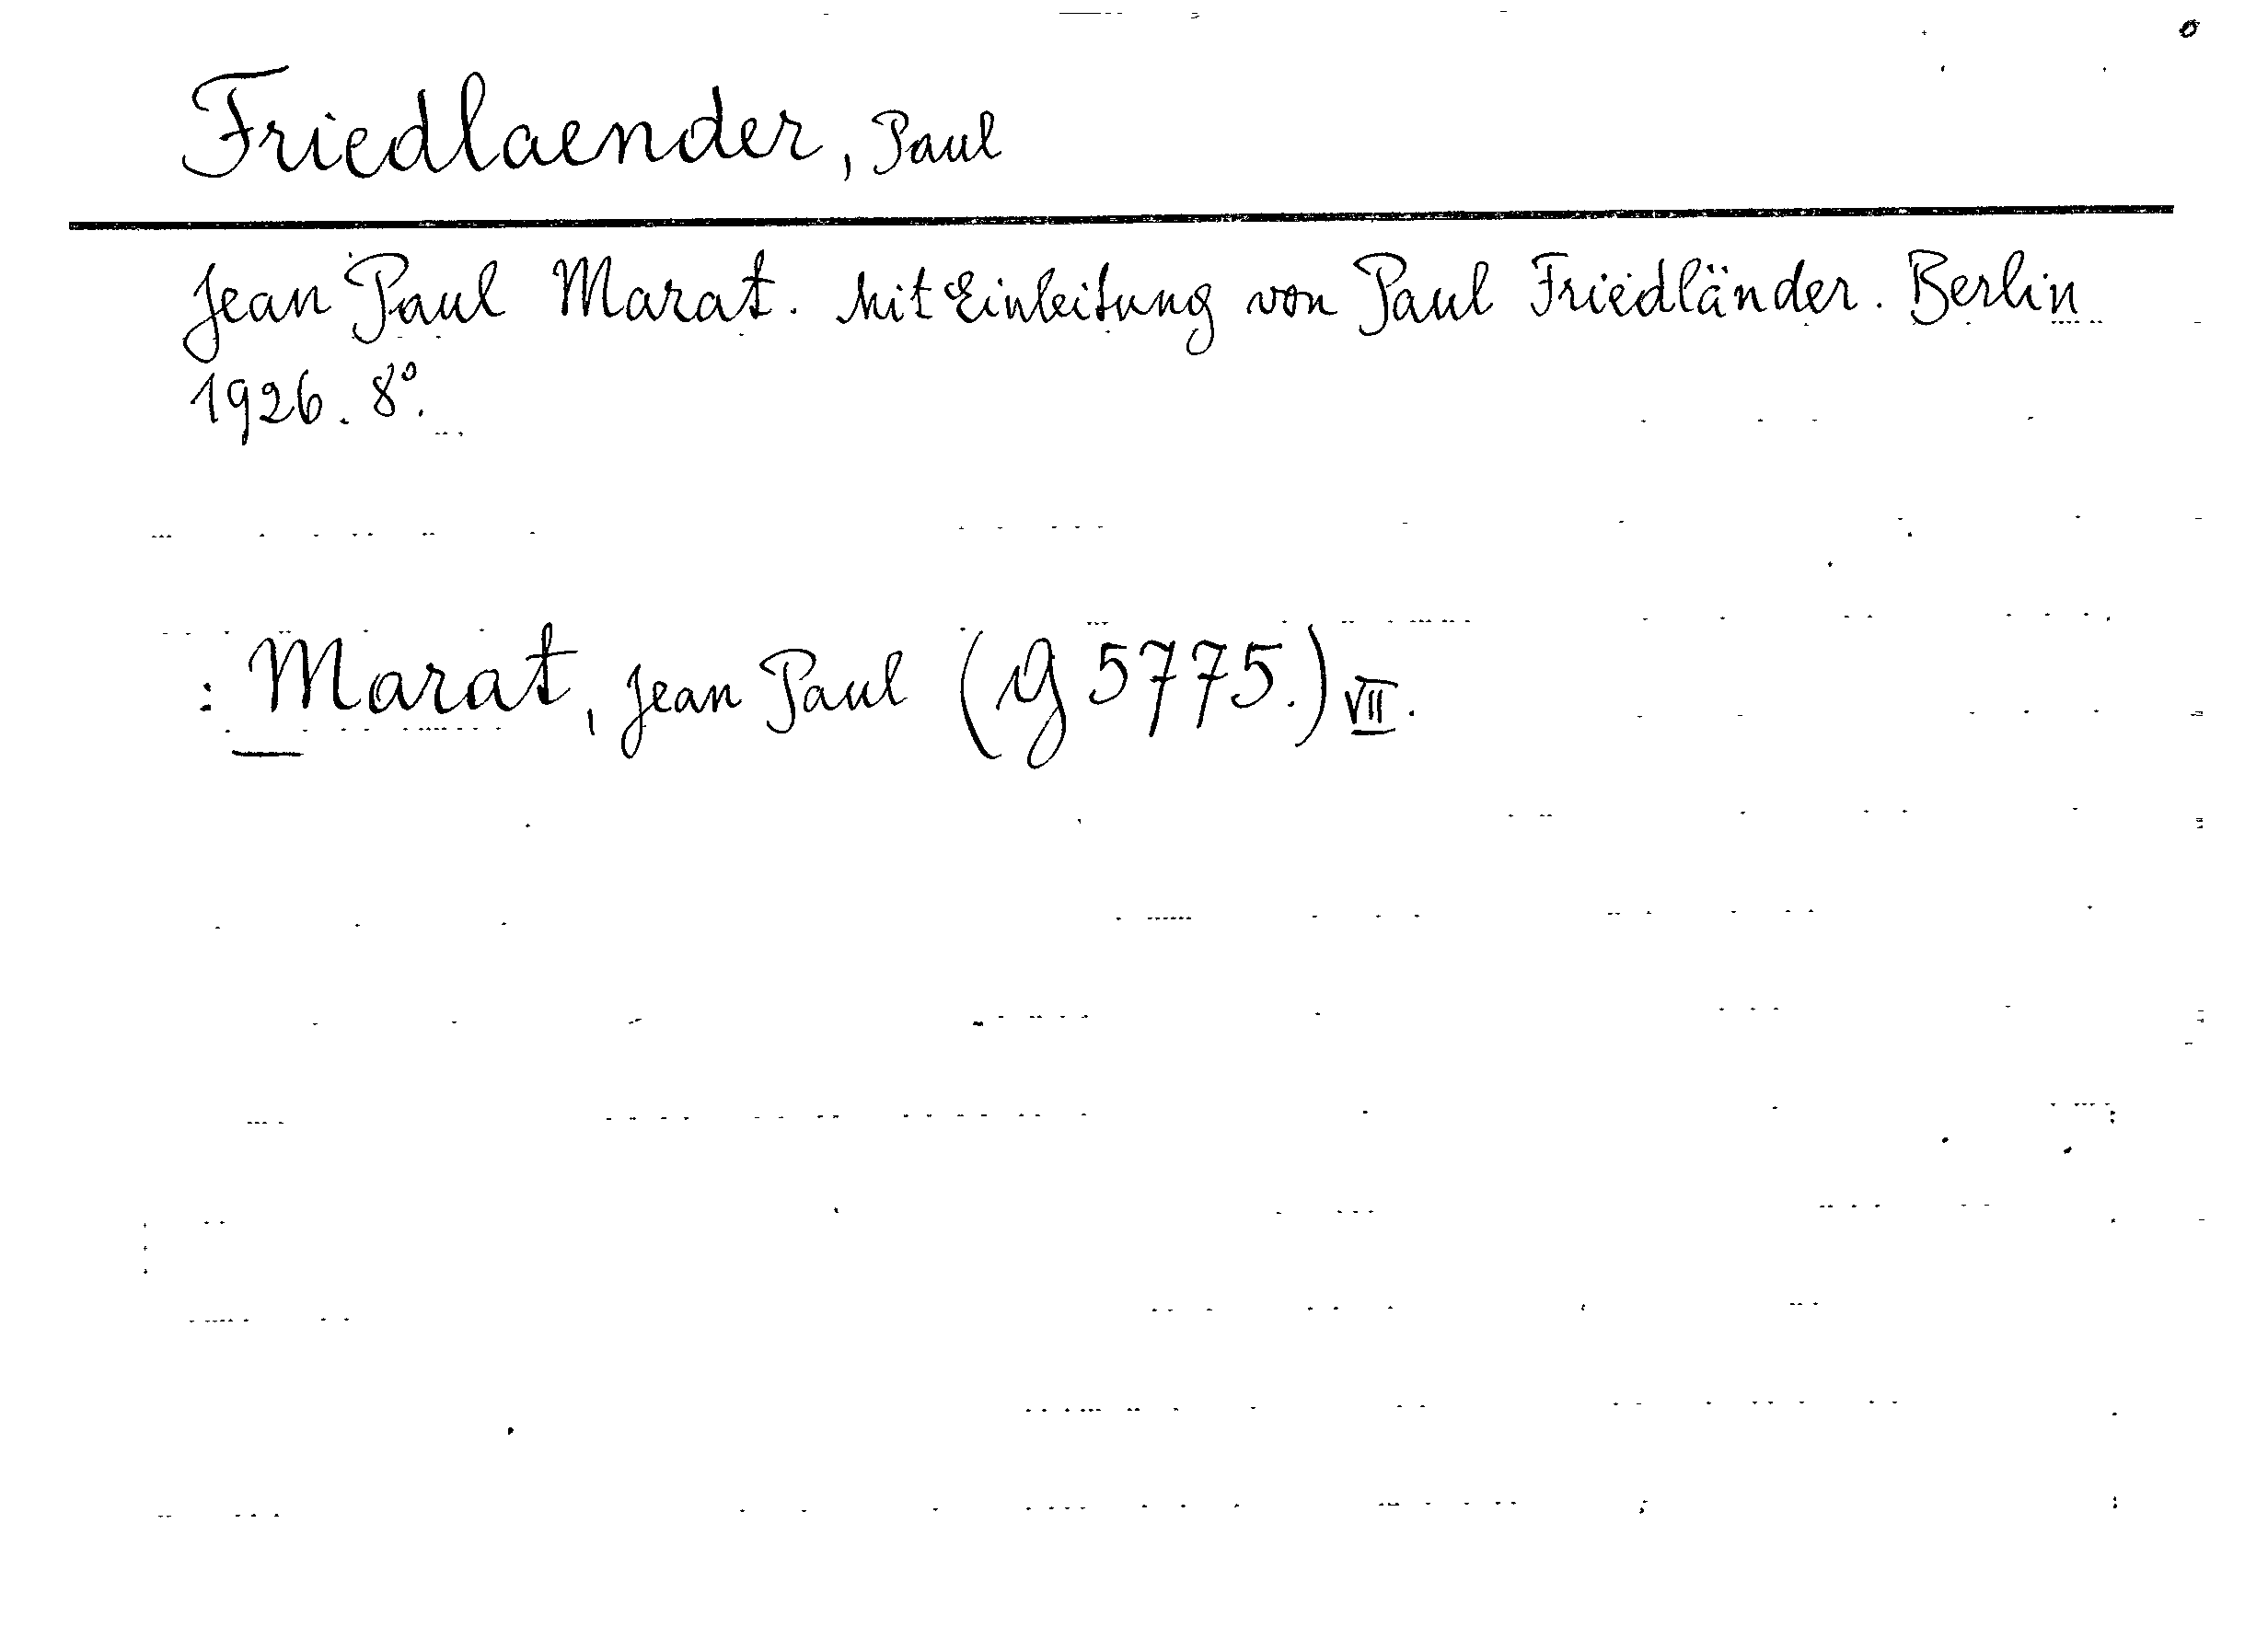 Friedlaender, Paul
Jean Paul Marat. Mit Einleitung von Paul Friedländer. Berlin
1926. 8°.
: Marat, Jean Paul (G 5775.) VII.